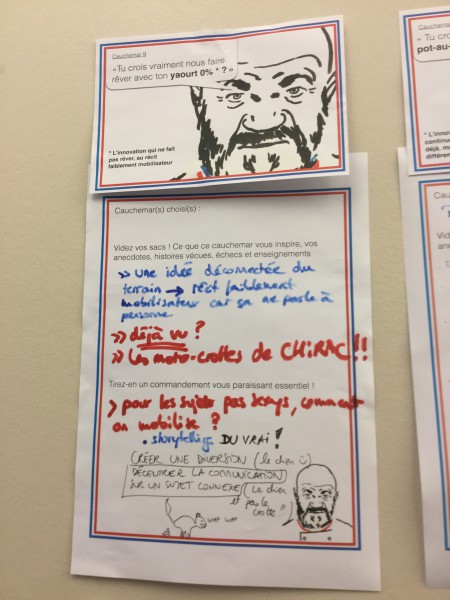 Cauchemar 9
« Tu crois vraiment nous faire
rêver avec ton yaourt 0% * ? »
* L'innovation qui ne fait
pas rêver, au récit
faiblement mobilisateur
Cauchemar
« Tu cro
pot-au-
Cauchemar(s) choisi(s) :
Videz vos sacs ! Ce que ce cauchemar vous inspire, vos
anecdotes, histoires vécues, échecs et enseignements
>> Une idée déconnectée du
terrain → récit faiblement
mobilisateur car ça ne parle à
personne
>> déjà vu ?
>> Les moto-crottes de CHIRAC !!
Tirez-en un commandement vous paraissant essentiel !
> pour les sujets pas sexys, comment
on mobilise ?
• storytelling DU VRAI !
CRÉER UNE DIVERSION (le chien)
DÉCENTRER LA COMMUNICATION
SUR UN SUJET CONNEXE (Le chien
et pas la
crotte !!)
WAF WAF
* L'inno
continu
déjà, m
différen
Vid
ane